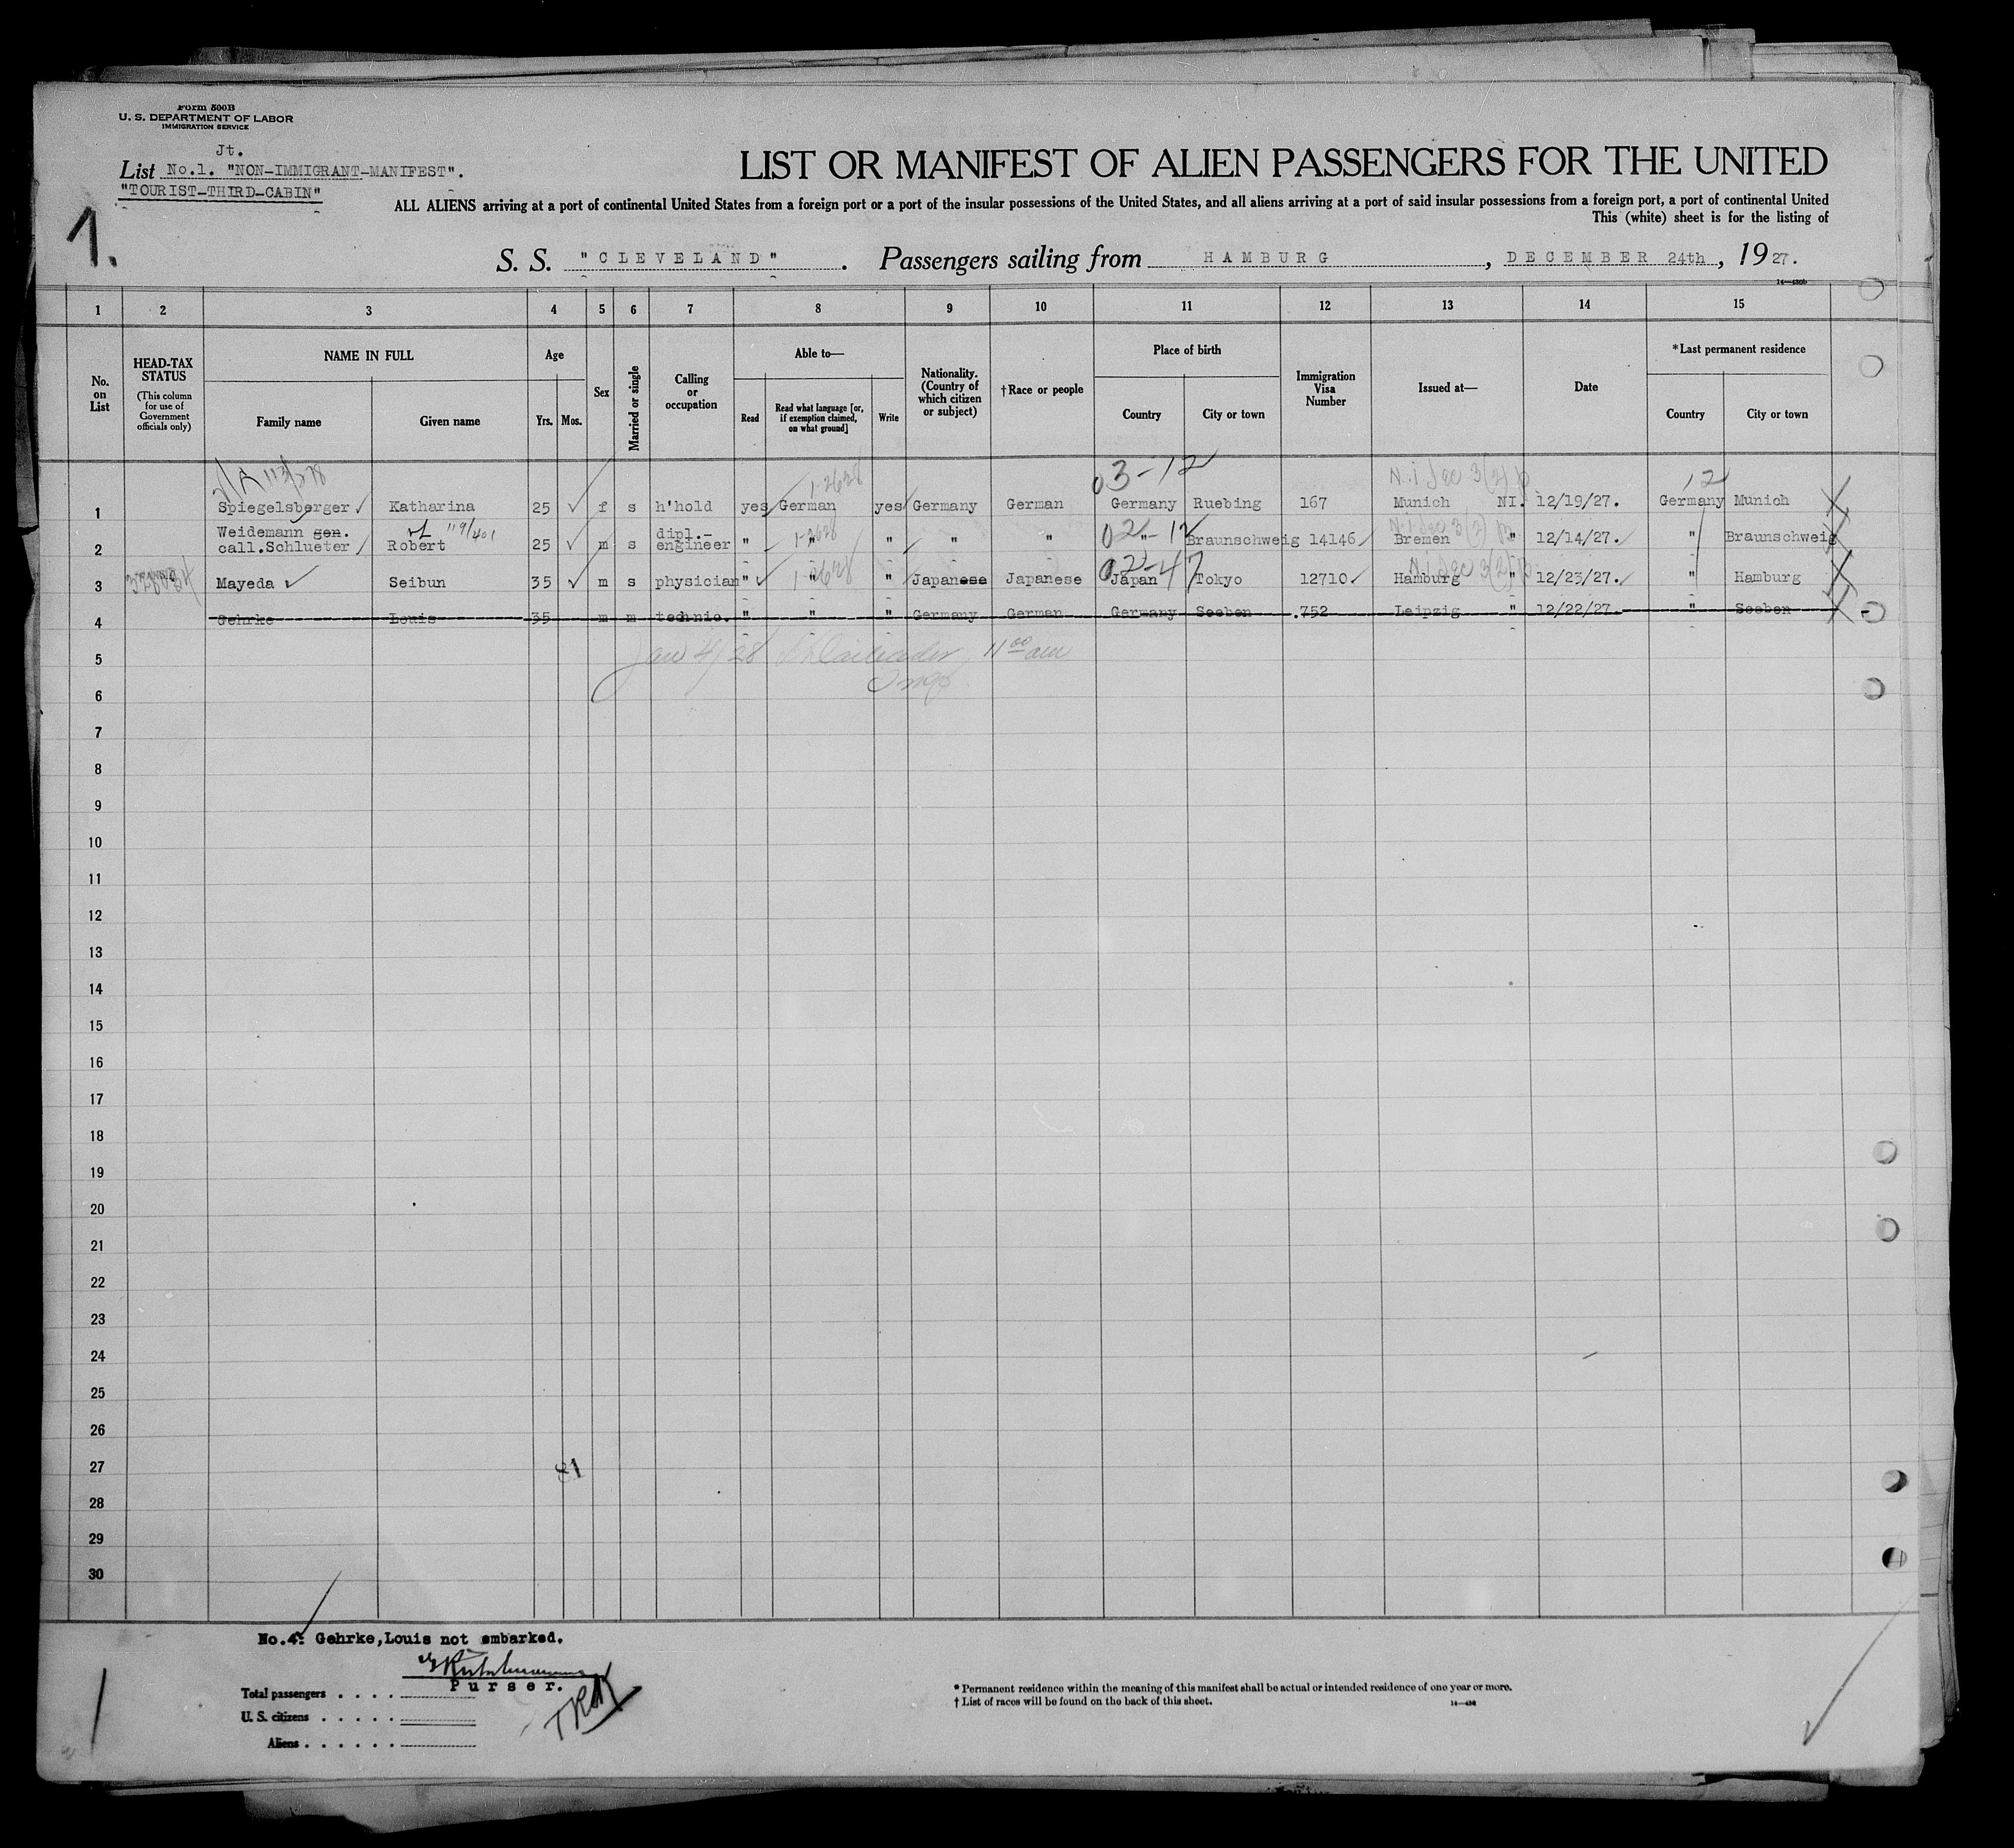 Form 500B
U. S. DEPARTMENT OF LABOR
IMMIGRATION SERVICE
Jt.
List No.1. "NON-IMMIGRANT-MANIFEST".
"TOURIST-THIRD-CABIN"
1.
LIST OR MANIFEST OF ALIEN PASSENGERS FOR THE UNITED
ALL ALIENS arriving at a port of continental United States from a foreign port or a port of the insular possessions of the United States, and all aliens arriving at a port of said insular possessions from a foreign port, a port of continental United
This (white) sheet is for the listing of
S. S. "CLEVELAND". Passengers sailing from HAMBURG, DECEMBER 24th, 1927.
1 2 3 4 5 6 7 8 9 10 11 12 13 14 15
No. on List
HEAD-TAX STATUS
(This column for use of Government officials only)
NAME IN FULL
Family name Given name
Age
Yrs. Mos.
Sex
Married or single
Calling or occupation
Able to—
Read
Read what language [or, if exemption claimed, on what ground]
Write
Nationality. (Country of which citizen or subject)
†Race or people
Place of birth
Country City or town
Immigration Visa Number
Issued at—
Date
*Last permanent residence
Country City or town
03-12 12
1 Spiegelsberger Katharina 25 f s h'hold yes German yes Germany German Germany Ruebing 167 Munich NI. 12/19/27. Germany Munich
119/401
02-12
2 Weidemann gen. call.Schlueter Robert 25 m s dipl.-engineer " " " " " " Braunschweig 14146 Bremen " 12/14/27. " Braunschweig
02-47
3 Mayeda Seibun 35 m s physician " " " Japanese Japanese Japan Tokyo 12710 Hamburg " 12/23/27. " Hamburg
4 Gehrke Louis 35 m m technic. " " " Germany German Germany Seeben .752 Leipzig " 12/22/27. " Seeben
Jan 4/28 11 00 am
5
6
Insp
7
8
9
10
11
12
13
14
15
16
17
18
19
20
21
22
23
24
25
26
27
28
29
30
No.4: Gehrke,Louis not embarked.
Purser.
Total passengers . . . .
U. S. citizens . . . . .
Aliens . . . . . .
* Permanent residence within the meaning of this manifest shall be actual or intended residence of one year or more.
† List of races will be found on the back of this sheet.